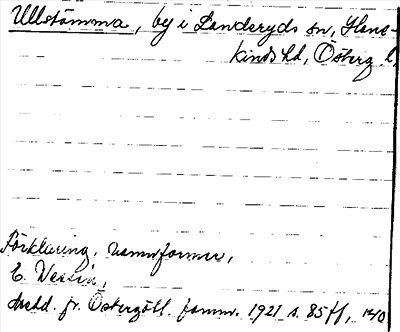 Ullstämma, by i Landeryds sn, Hane-
kinds hd, Österg. l.
Förklaring, namnformer,
E. Wessén,
Medd. fr. Östergötl. fornm. 1921 s. 85 ff,